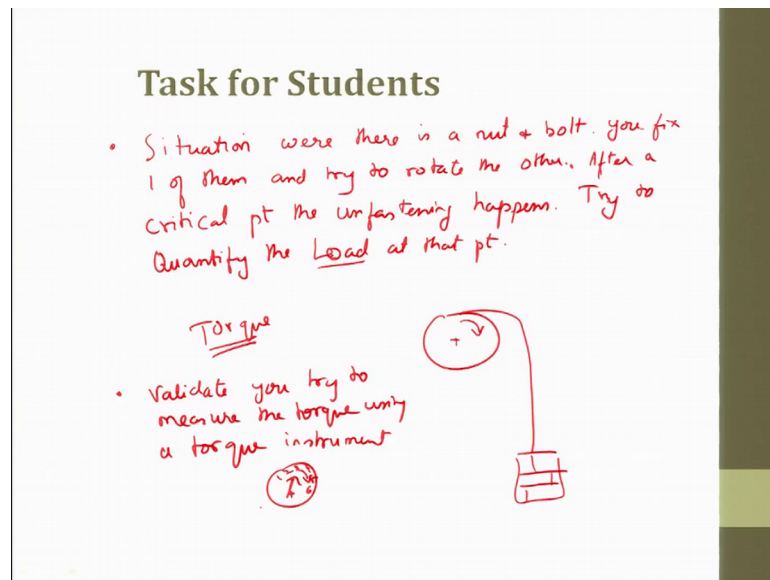 Task for Students
• Situation were there is a nut & bolt. you fix
1 of them and try to rotate the other. After a
critical pt the unfastening happens. Try to
Quantify the Load at that pt.
Torque
• Validate you try to
measure the torque using
a torque instrument